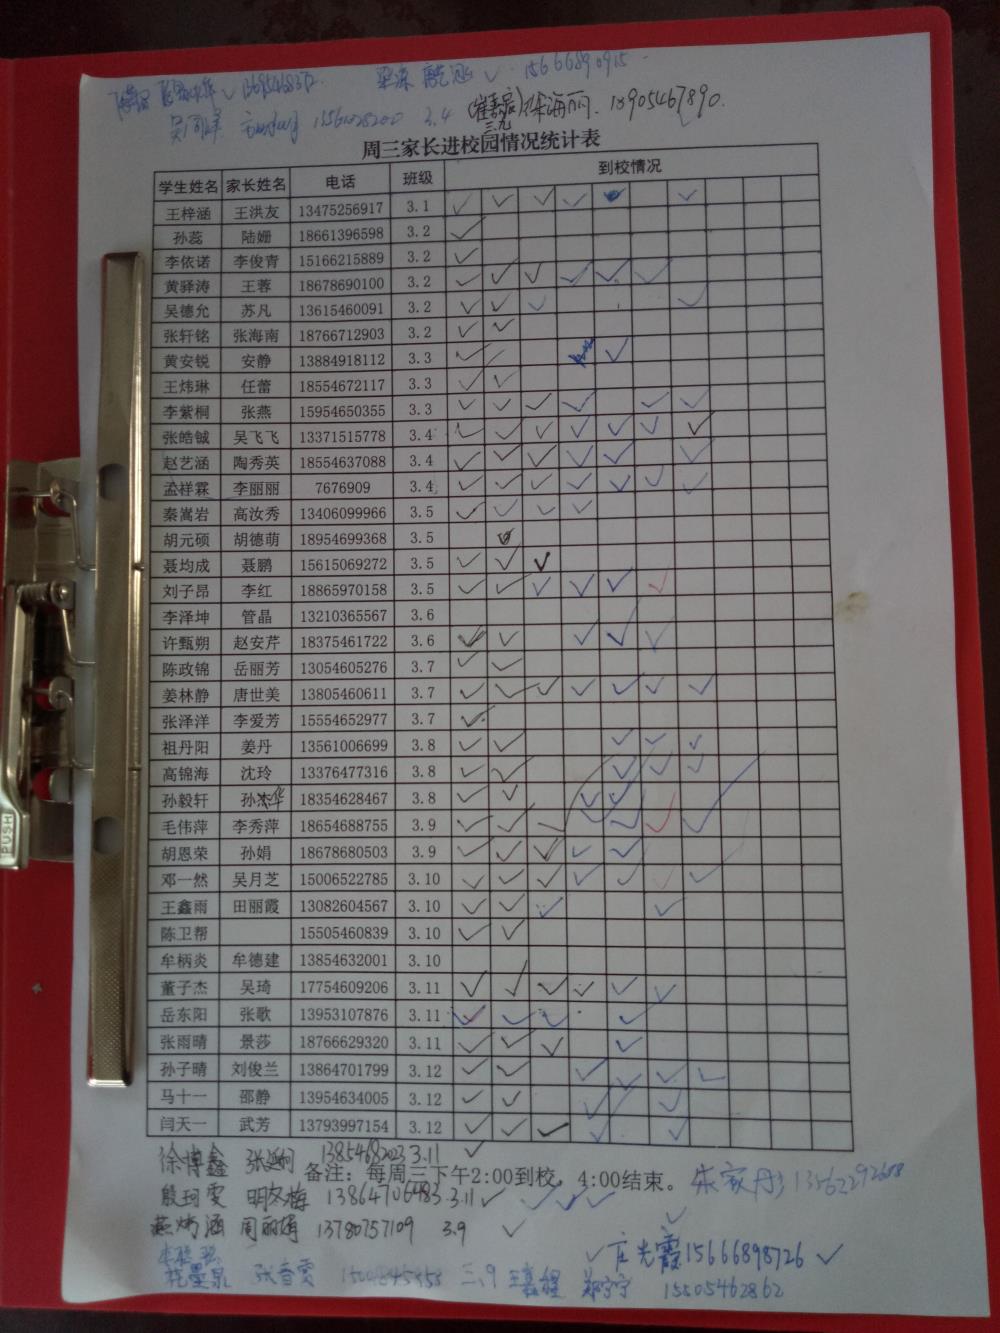 13695468372 梁冻 15666890915
3.4 徐海丽 13905467890
三.九
周三家长进校园情况统计表
学生姓名 家长姓名 电话 班级 到校情况
王梓涵 王洪友 13475256917 3.1
孙蕊 陆姗 18661396598 3.2
李依诺 李俊青 15166215889 3.2
黄驿涛 王蓉 18678690100 3.2
吴德允 苏凡 13615460091 3.2
张轩铭 张海南 18766712903 3.2
黄安锐 安静 13884918112 3.3
王炜琳 任蕾 18554672117 3.3
李紫桐 张燕 15954650355 3.3
张皓铖 吴飞飞 13371515778 3.4
赵艺涵 陶秀英 18554637088 3.4
孟祥霖 李丽丽 7676909 3.4
秦嵩岩 高汝秀 13406099966 3.5
胡元硕 胡德萌 18954699368 3.5
聂均成 聂鹏 15615069272 3.5
刘子昂 李红 18865970158 3.5
李泽坤 管晶 13210365567 3.6
许甄朔 赵安芹 18375461722 3.6
陈政锦 岳丽芳 13054605276 3.7
姜林静 唐世美 13805460611 3.7
张泽洋 李爱芳 15554652977 3.7
祖丹阳 姜丹 13561006699 3.8
高锦海 沈玲 13376477316 3.8
孙毅轩 孙杰华 18354628467 3.8
毛伟萍 李秀萍 18654688755 3.9
胡恩荣 孙娟 18678680503 3.9
邓一然 吴月芝 15006522785 3.10
王鑫雨 田丽霞 13082604567 3.10
陈卫帮 15505460839 3.10
牟柄炎 牟德建 13854632001 3.10
董子杰 吴琦 17754609206 3.11
岳东阳 张歌 13953107876 3.11
张雨晴 景莎 18766629320 3.11
孙子晴 刘俊兰 13864701799 3.12
马十一 邵静 13954634005 3.12
闫天一 武芳 13793997154 3.12
徐博鑫 13854682023 3.11
备注：每周三下午2:00到校，4:00结束。
殷珂雯 明冬梅 13864706483 3.11
燕炳涵 周丽娟 13780757109 3.9
庄光霞 15666898726
张香雲 三.9 郑宁宁 15505462862